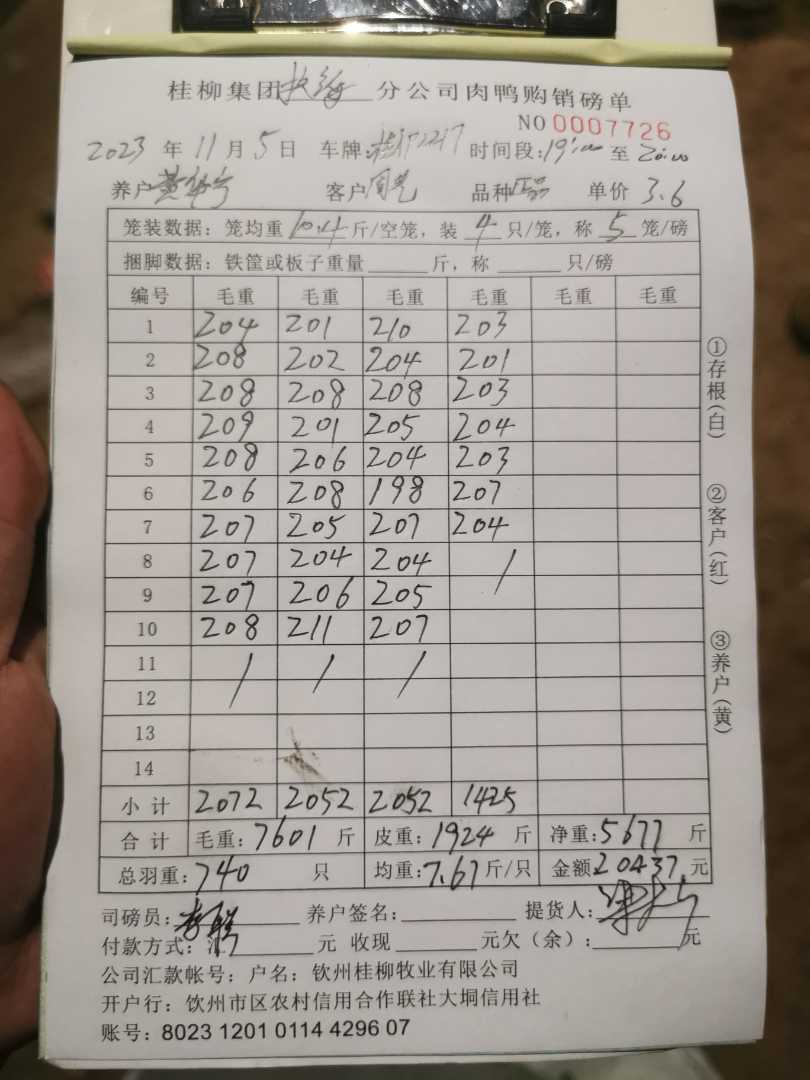 桂柳集团 分公司肉鸭购销磅单
NO 0007726
2023 年 11 月 5 日 车牌: 时间段:19:00 至 20:00
养户 客户 品种 单价 3.6
笼装数据：笼均重 10.4 斤/空笼，装 4 只/笼，称 5 笼/磅
捆脚数据：铁筐或板子重量 斤，称 只/磅
编号 毛重 毛重 毛重 毛重 毛重 毛重
1 204 201 210 203
2 208 202 204 201
3 208 208 208 203
4 209 201 205 204
5 208 206 204 203
6 206 208 198 207
7 207 205 207 204
8 207 204 204 /
9 207 206 205
10 208 211 207
11 / / /
12
13
14
小计 2072 2052 2052 1425
合计 毛重：7601 斤 皮重：1924 斤 净重：5677 斤
总羽重：740 只 均重：7.67 斤/只 金额 20437 元
司磅员： 养户签名： 提货人：
付款方式：汇 元 收现 元欠（余）： 元
公司汇款帐号：户名：钦州桂柳牧业有限公司
开户行：钦州市区农村信用合作联社大垌信用社
账号：8023 1201 0114 4296 07
①存根(白)
②客户(红)
③养户(黄)